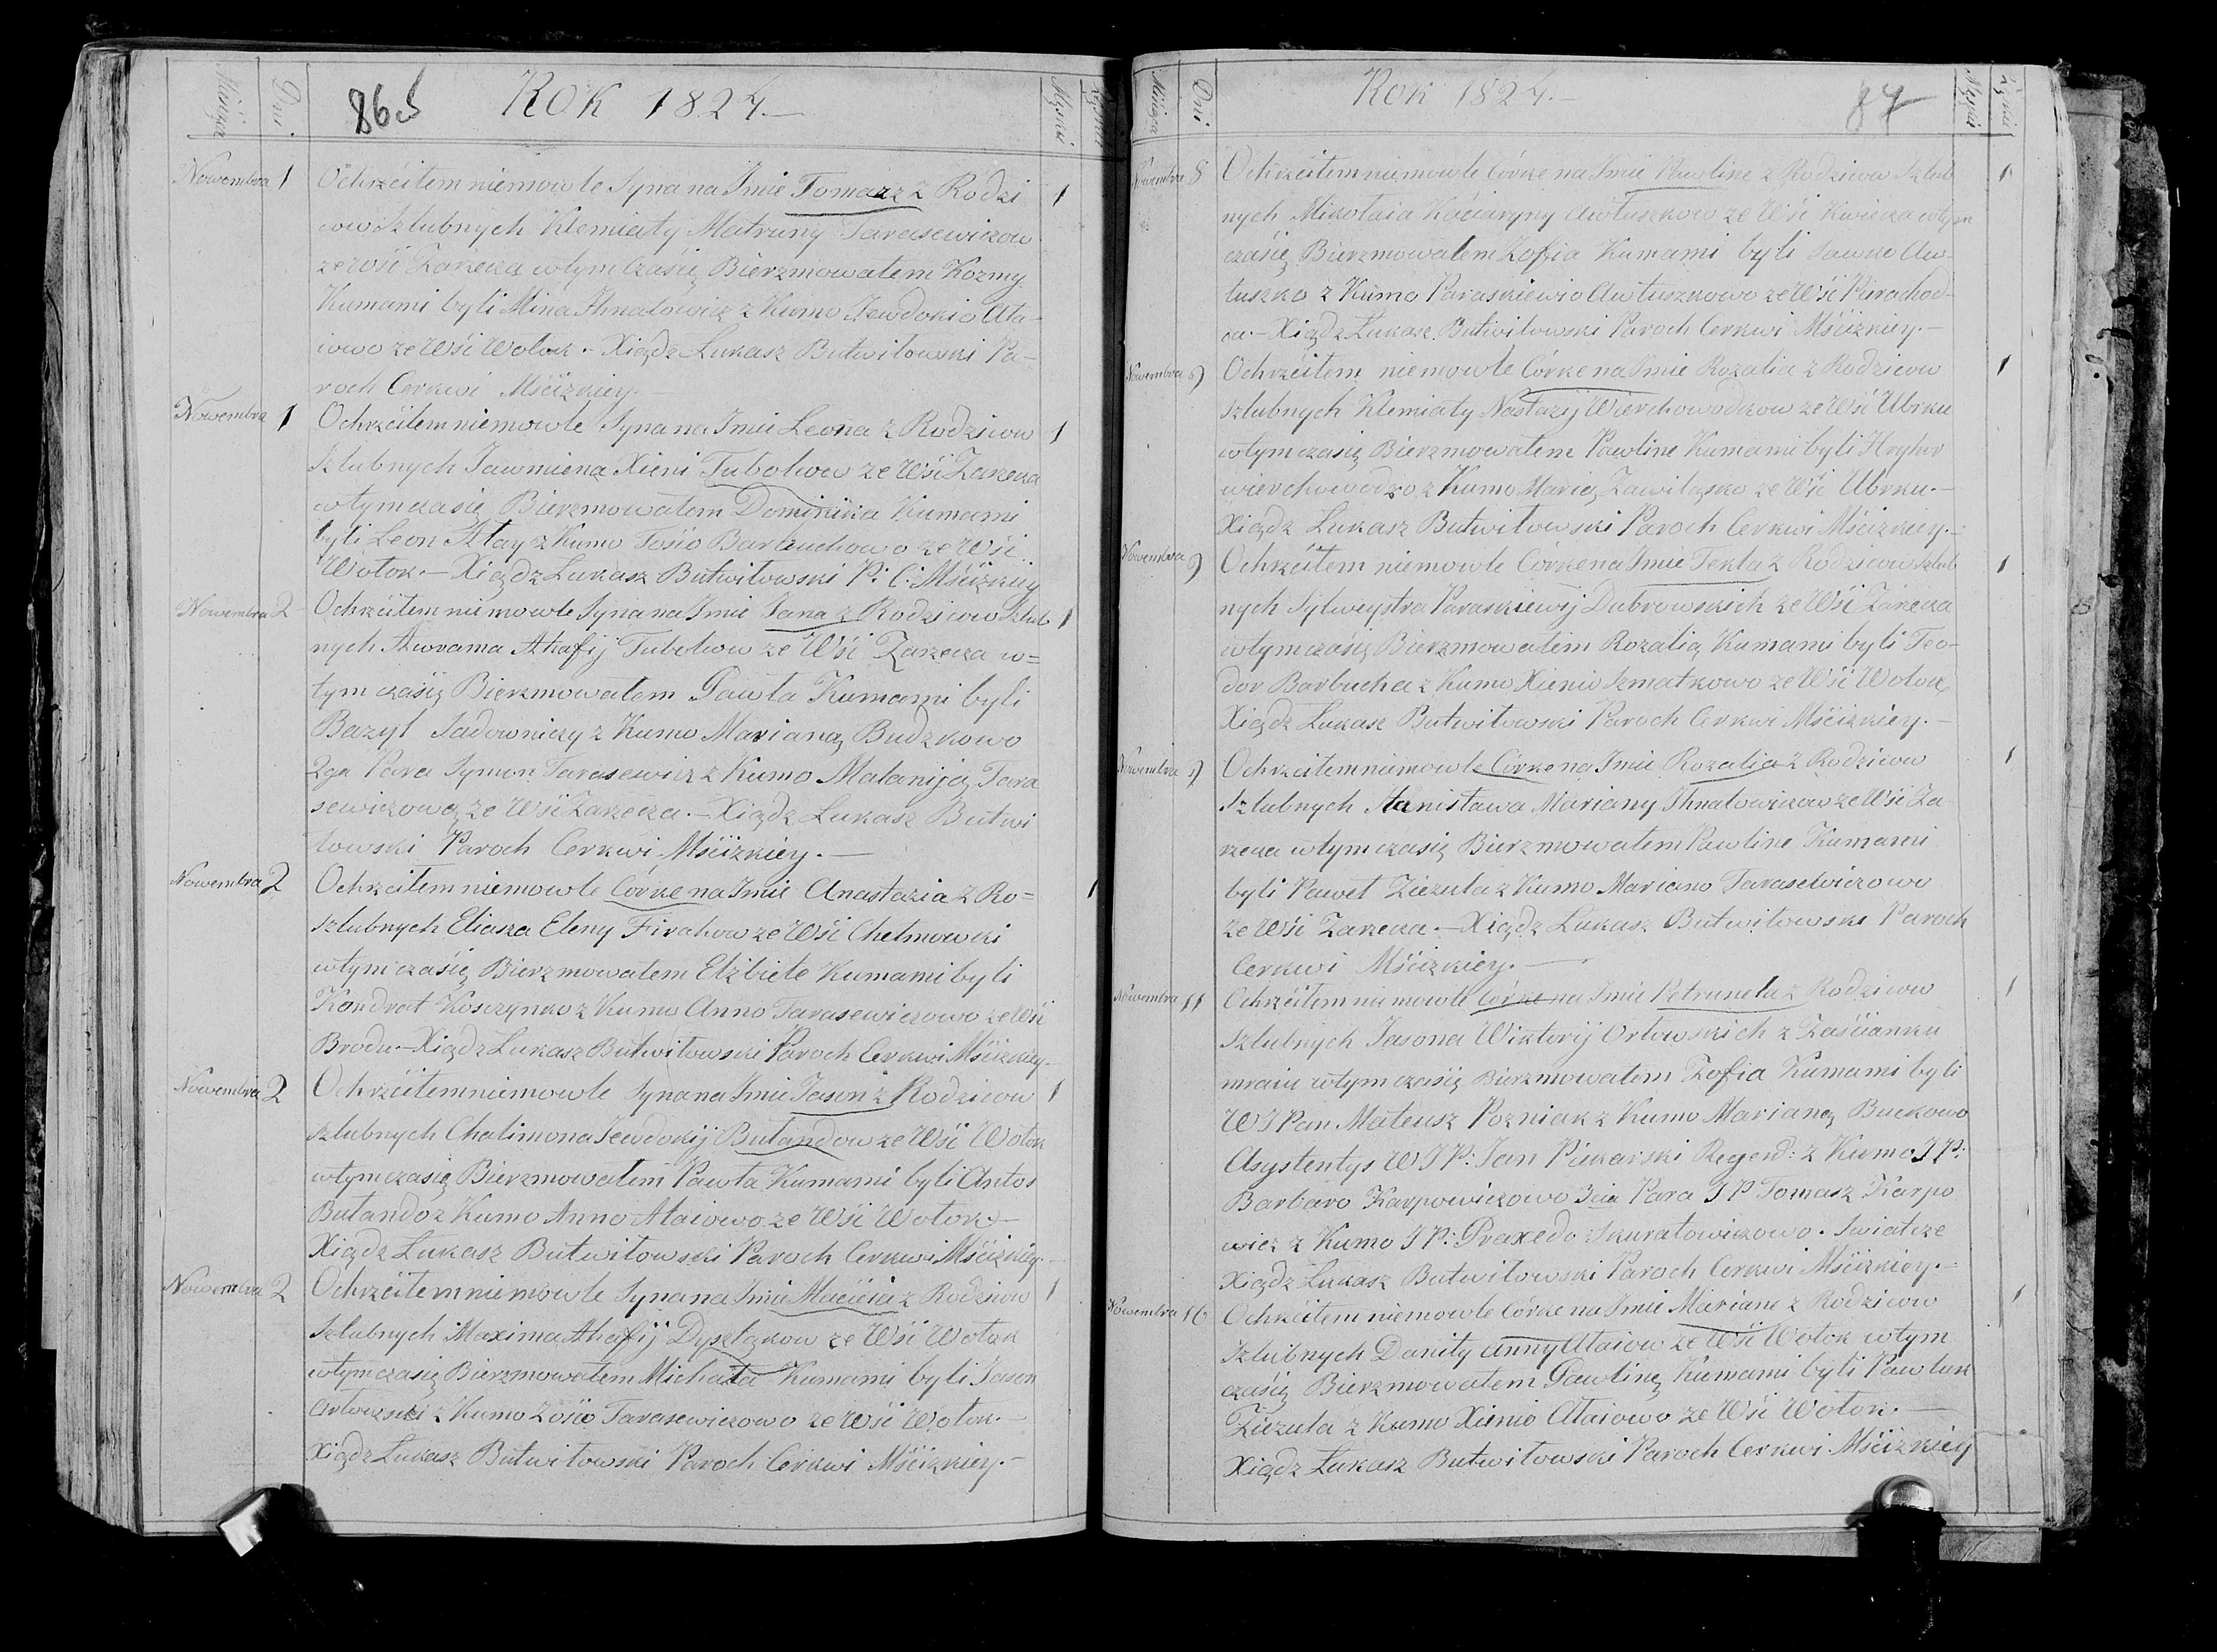 Miesiąca Dni 86 ROK 1824.— Męskie Żeńskie
Nowembra 1 Ochrzciłem niemowle Syna na Imie Tomasz z Rodzi 1
cow Szlubnych Klemiaty Matruny Tarasewiczow
ze Wśi Zarzecza w tym czaśię Bierzmowałem Kozmy
Kumami byli Mina Ihnatowicz z Kumo Jewdokio Ata-
iowo ze Wśi Wołok.— Xiądz Łukasz Butwiłowski Pa-
roch Cerkwi Mśćizkiey.—
Nowembra 1 Ochrzciłem niemowle Syna na Imie Leona z Rodzicow 1
Szlubnych Jawmiena Xieni Tubolcow ze Wśi Zarzecza
w tym czaśię Bierzmowałem Dominika Kumami
byli Leon Atay z Kumo Zośio Barbuchowo ze Wśi
Wołok.— Xiądz Łukasz Butwiłowski P: C: Mśćizkiey
Nowembra 2 Ochrzciłem niemowle Syna na Imie Jana z Rodzicow Szlub 1
nych Awrama Ahafij Tubolcow ze Wśi Zarzecza w=
tym czaśię Bierzmowałem Pawła Kumami byli
Bazyl Sadowniczy z Kumo Marianą Budzkowo
2ga Para Symon Tarasewicz z Kumo Małaniją Tara
sewiczową ze Wśi Zarzecza.— Xiądz Łukasz Butwi
łowski Paroch Cerkwi Mśćizkiey.—
Nowembra 2 Ochrzciłem niemowle Córke na Imie Anastazia z Ro= 1
Szlubnych Eliasza Eleny Firahow ze Wśi Chełmowki
w tym czaśię Bierzmowałem Elżbiete Kumami byli
Kondrat Koszczynko z Kumo Anno Tarasewiczowo ze Wśi
Brodu.— Xiądz Łukasz Butwiłowski Paroch Cerkwi Mśćizkiey.—
Nowembra 2 Ochrzciłem niemowle Syna na Imie Jason z Rodzicow 1
Szlubnych Chalimona Jewdokij Butandow ze Wśi Wołok
w tym czaśię Bierzmowałem Pawła Kumami byli Antos
Butando z Kumo Anno Ataiowo ze Wśi Wołok.—
Xiądz Łukasz Butwiłowski Paroch Cerkwi Mśćizkiey.—
Nowembra 2 Ochrzciłem niemowle Syna na Imie Maćieia z Rodzicow 1
Szlubnych Maxima Ahafij Dyszląkow ze Wśi Wołok
w tym czaśię Bierzmowałem Michała Kumami byli Jason
Orłowski z Kumo Zośio Tarasewiczowo ze Wśi Wołok.—
Xiądz Łukasz Butwiłowski Paroch Cerkwi Mśćizkiey.—
Miesiąca Dni Rok 1824.— 87 Męskie Żeńskie
Nowembra 8 Ochrzciłem niemowle Córke na Imie Pawline z Rodzicow Szlub 1
nych Mikołaia Kaciaryny Awtuszkow ze Wśi Kwiecza w tym
czaśię Bierzmowałem Zofia Kumami byli Sawko Aw-
tuszko z Kumo Paraskiewio Awtuszkowo ze Wśi Pierachod-
ca.— Xiądz Łukasz Butwiłowski Paroch Cerkwi Mśćizkiey.—
Nowembra 9 Ochrzciłem niemowle Córke na Imie Rozalia z Rodzicow 1
Szlubnych Klemiaty Nastazij Wierchowodkow ze Wśi Ubrku
w tym czaśię Bierzmowałem Pawline Kumami byli Hryhor
Wierchowodko z Kumo Marią Zawiląsko ze Wśi Ubrku.—
Xiądz Łukasz Butwiłowski Paroch Cerkwi Mśćizkiey.—
Nowembra 9 Ochrzciłem niemowle Córke na Imie Tekla z Rodzicow Szlub 1
nych Sylweystra Paraskiewij Dubrowskich ze Wśi Zarzecza
w tym czaśię Bierzmowałem Rozalią Kumami byli Teo-
dor Barbucha z Kumo Xienio Szmatkowo ze Wśi Wołok
Xiądz Łukasz Butwiłowski Paroch Cerkwi Mśćizkiey.—
Nowembra 9 Ochrzciłem niemowle Córke na Imie Rozalia z Rodzicow 1
Szlubnych Stanisława Mariany Ihnatowiczow ze Wśi Za
rzecza w tym czaśię Bierzmowałem Pawline Kumami
byli Paweł Ziezula z Kumo Mariano Tarasewiczowo
ze Wśi Zarzecza.— Xiądz Łukasz Butwiłowski Paroch
Cerkwi Mśćizkiey.—
Nowembra 11 Ochrzciłem niemowle Córke na Imie Petrunela z Rodzicow 1
Szlubnych Jasona Wiktorij Orłowskich z Zaśćianku
mraiu w tym czaśię Bierzmowałem Zofia Kumami byli
W J Pan Mateusz Pozniak z Kumo Marianą Buckowo
Asystentys W J P: Jan Piekarski Regend: z Kumo J P:
Barbaro Karpowiczowo 3cia Para J P Tomasz Karpo
wicz z Kumo J P: Praxedo Skuratowiczowo. Swiatcze
Xiądz Łukasz Butwiłowski Paroch Cerkwi Mśćizkiey.—
Nowembra 16 Ochrzciłem niemowle Córke na Imie Mariane z Rodzicow 1
Szlubnych Daniły Anny Ataiow ze Wśi Wołok w tym
czaśię Bierzmowałem Pawlinę Kumami byli Pawluk
Ziezula z Kumo Xienio Ataiowo ze Wśi Wołok.—
Xiądz Łukasz Butwiłowski Paroch Cerkwi Mśćizkiey